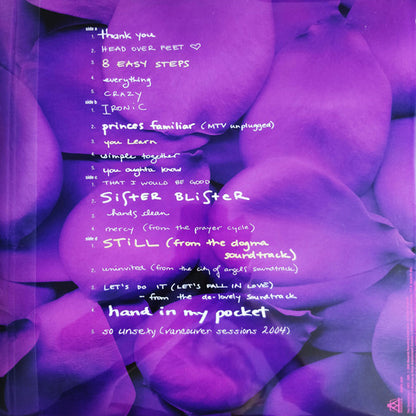 side a
1. thank you
2. HEAD OVER FEET ♡
3. 8 EASY STEPS
4. everything
5. CRAZY
side b
1. IRONIC
2. princes familiar (MTV unplugged)
3. you learn
4. simple together
5. you oughta know
side c
1. THAT I WOULD BE GOOD
2. SiSTER BLiSTeR
3. hands clean
4. mercy (from the prayer cycle)
side d
1. STiLL (from the dogma
soundtrack)
2. uninvited (from the city of angels soundtrack)
3. LET'S DO IT (LET'S FALL IN LOVE)
- from the de-lovely soundtrack
4. hand in my pocket
5. so unsexy (vancouver sessions 2004)